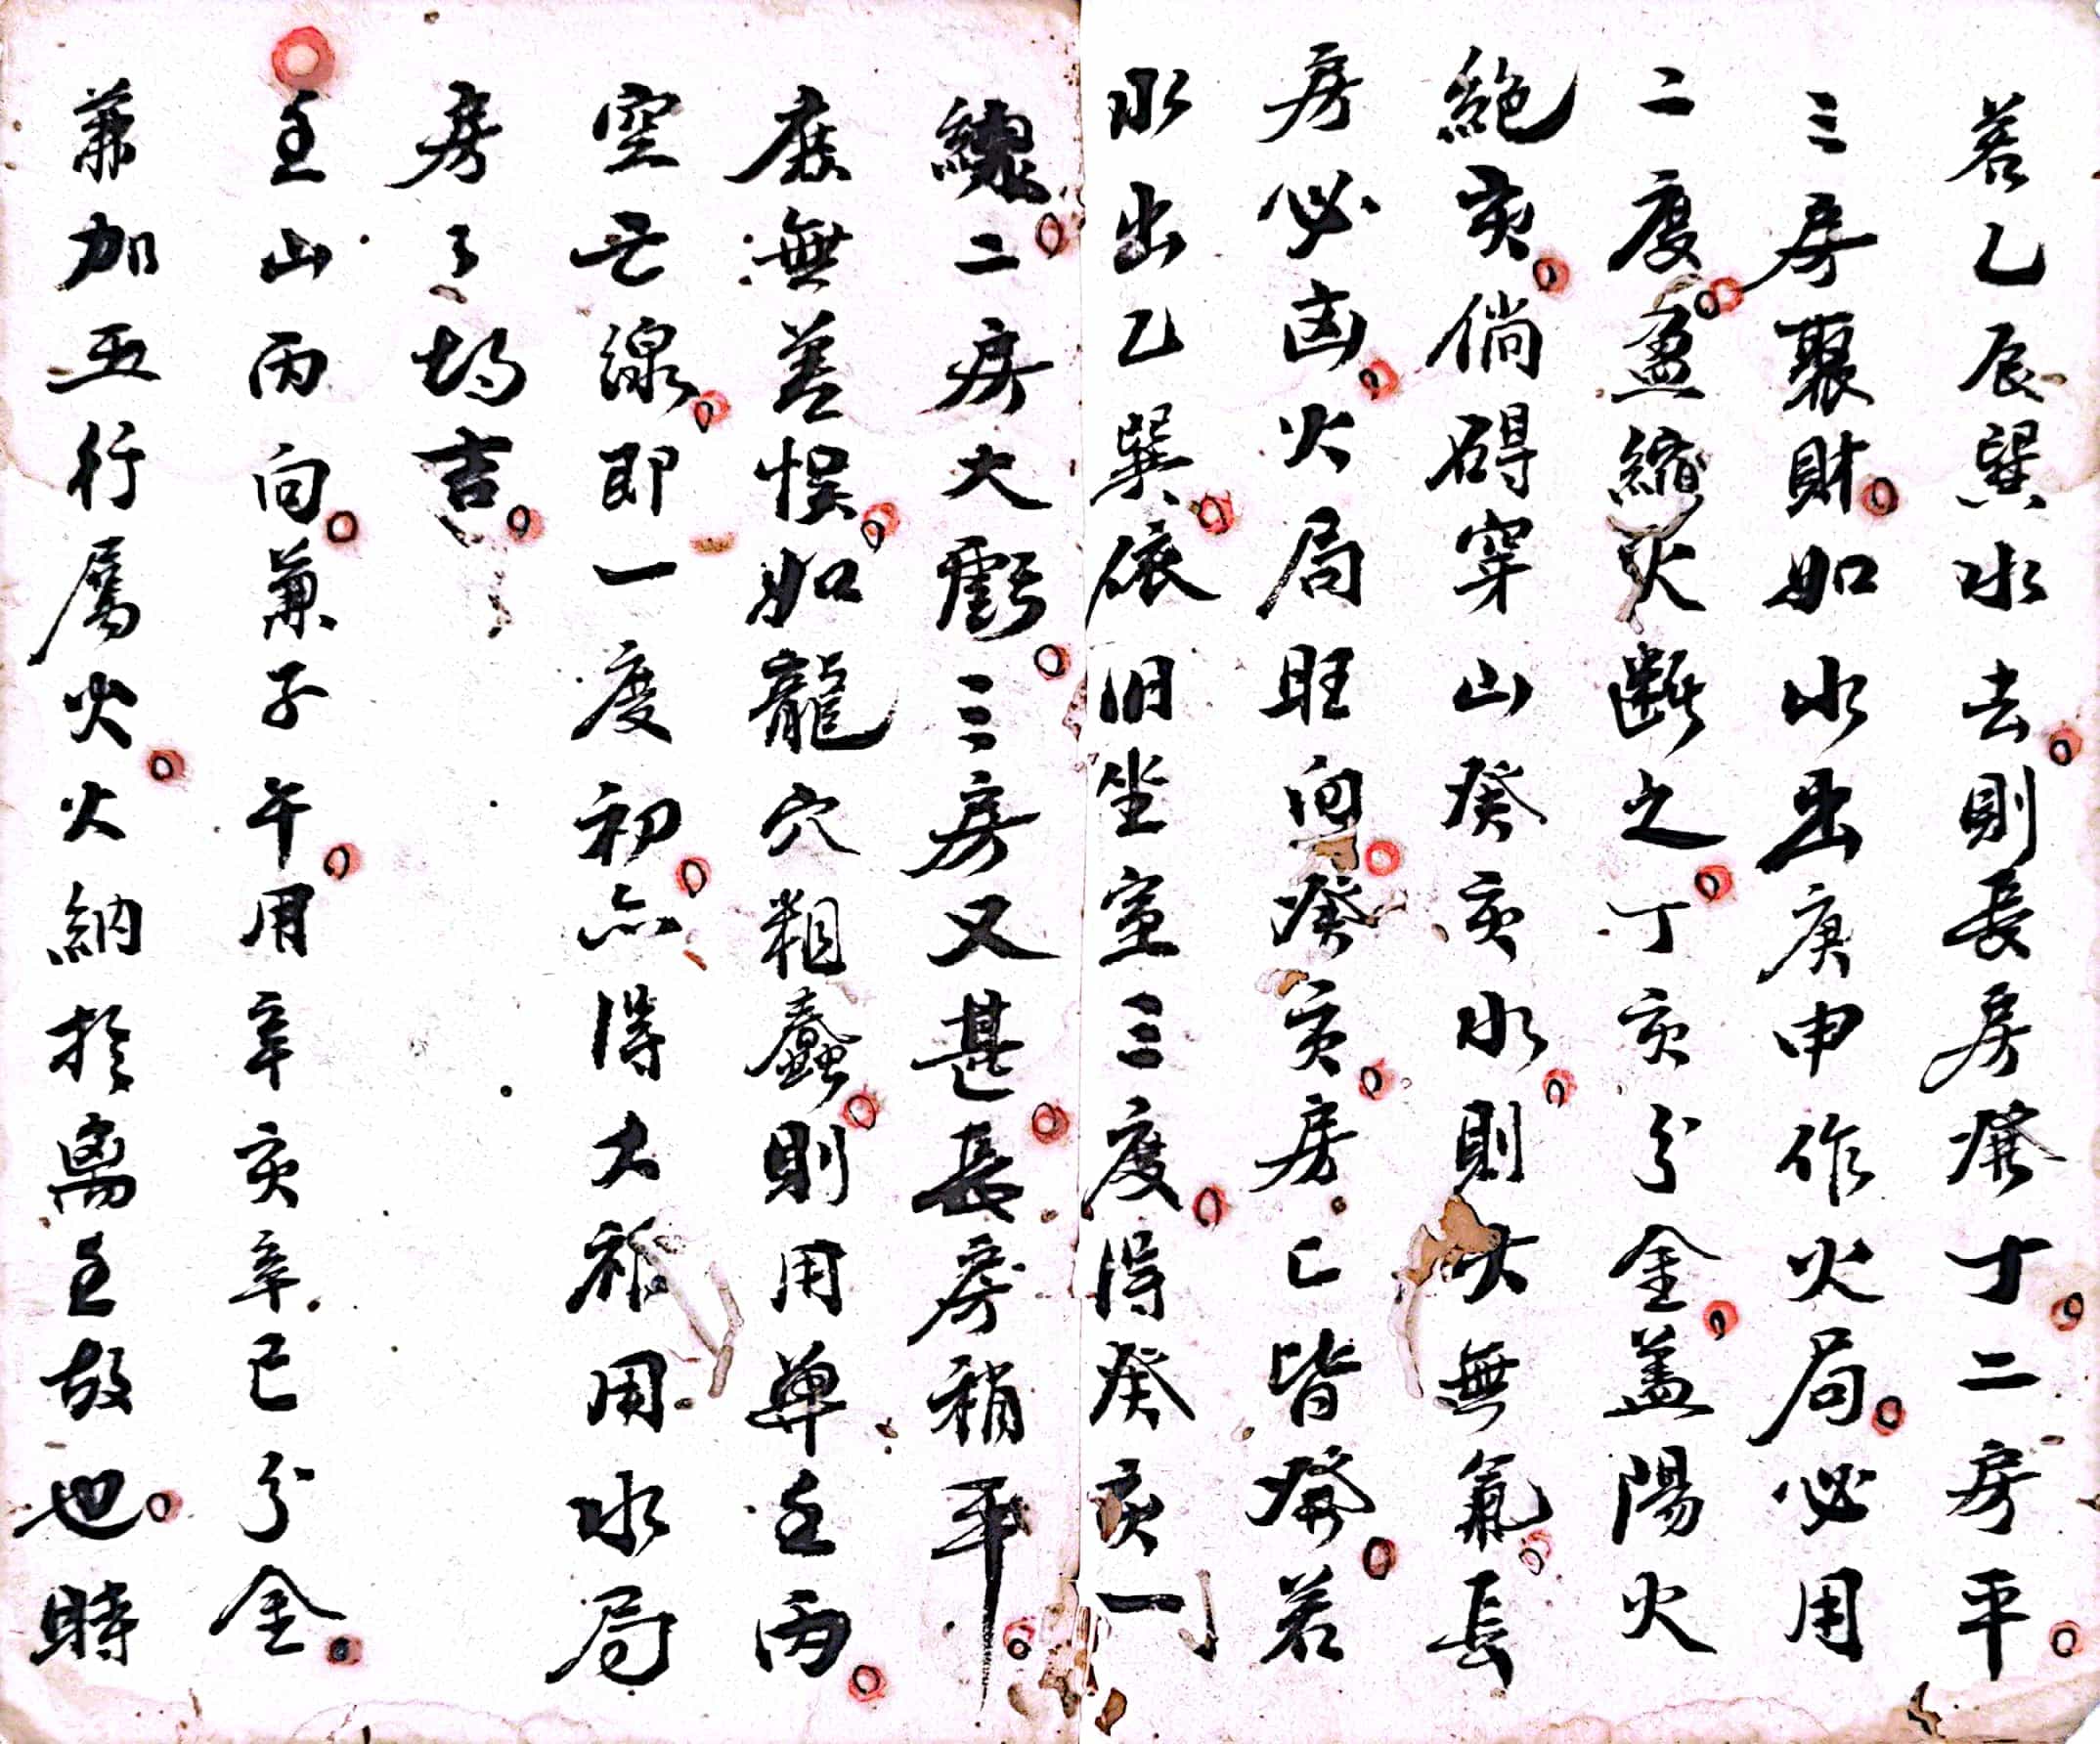 若乙辰巽水去則長房發丁二房平
三房聚財如水出庚申作火局必用
二度盈縮火断之丁亥分金盖陽火
絶亥倘碍穿山癸亥水則火無氣長
房必凶火局旺向癸亥房亡皆發若
水出乙巽依旧坐壬三度得癸亥一
線二房大虧三房又甚長房稍平
庶無差悞如龍穴粗蠢則用单壬丙
空亡線即一度初亦得大福用水局
房了均吉
壬山丙向兼子午用辛亥辛巳分金
兼加五行屬火火納於离壬故也時